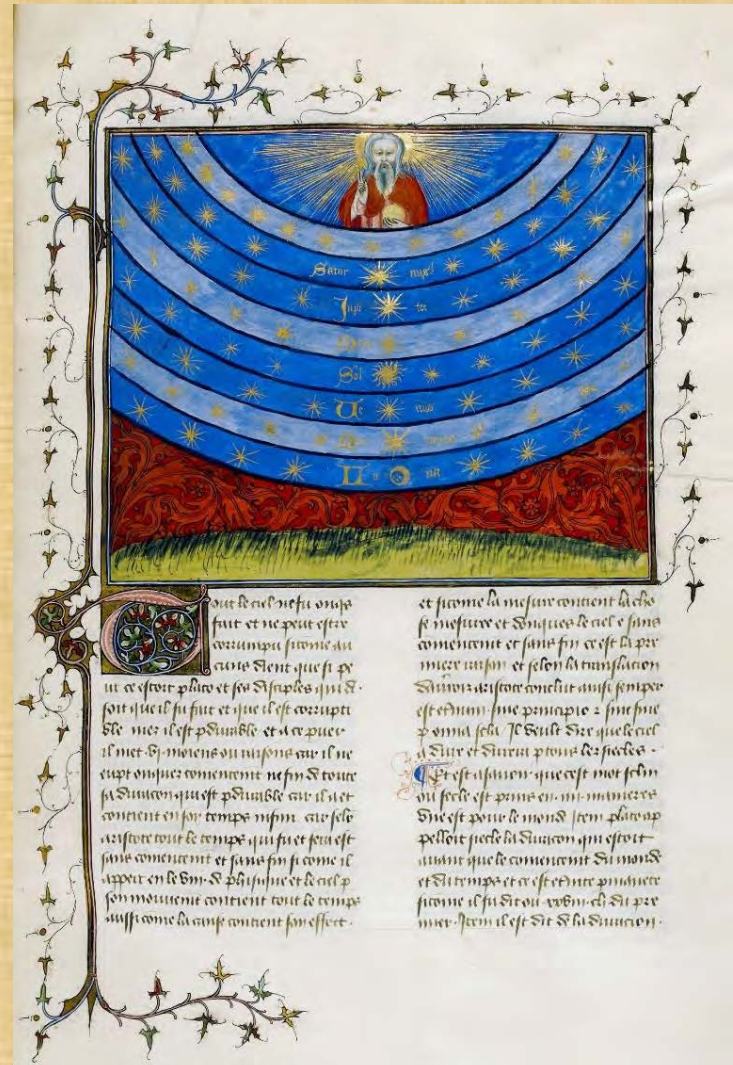 Satur nus
Jupi ter
Mars
Sol
U nus
Lu na
Tout le ciel ne fu onqs
fait et ne peut estre
corrumpu sicome au
cuns dient que si pe
ut ce estoit plato et ses disciples qui di
soit que il fu fait et que il est corrupti
ble mes il est pdurable et a ce puer
il met .vj. moiens ou raisons car il ne
eust onques comencemt ne fin de toute
sa duracion qui est pdurable car il a et
contient en son temps infini car selo
aristote tout le temps qui fu et sera est
sans comencemt et sans fin si come il
appert en le viij. de phisique et le ciel p
son mouvemt contient tout le temps
aussi come la cause contient son effect.
et sicome la mesure contient la cho
se mesuree et donques le ciel e sans
comencemt et sans fin ce est la pre
miere raison et selon la translacion
aristote conclut ainsi semper
est etnum sine principio z sine fine
p omnia scla. Il veult dire que le ciel
a dure et durera p tous les siecles.
Et est assavoir que cest mot sclm
ou siecle est prins en .iiij. manieres
une est pour le monde Item plato ap
pelloit siecle la duracion qui estoit
avant que le comencemt du monde
et du temps et ce est etnite pmanete
sicome il fu dit ou ch. du pre
mier. Item il est dit de la duracion.